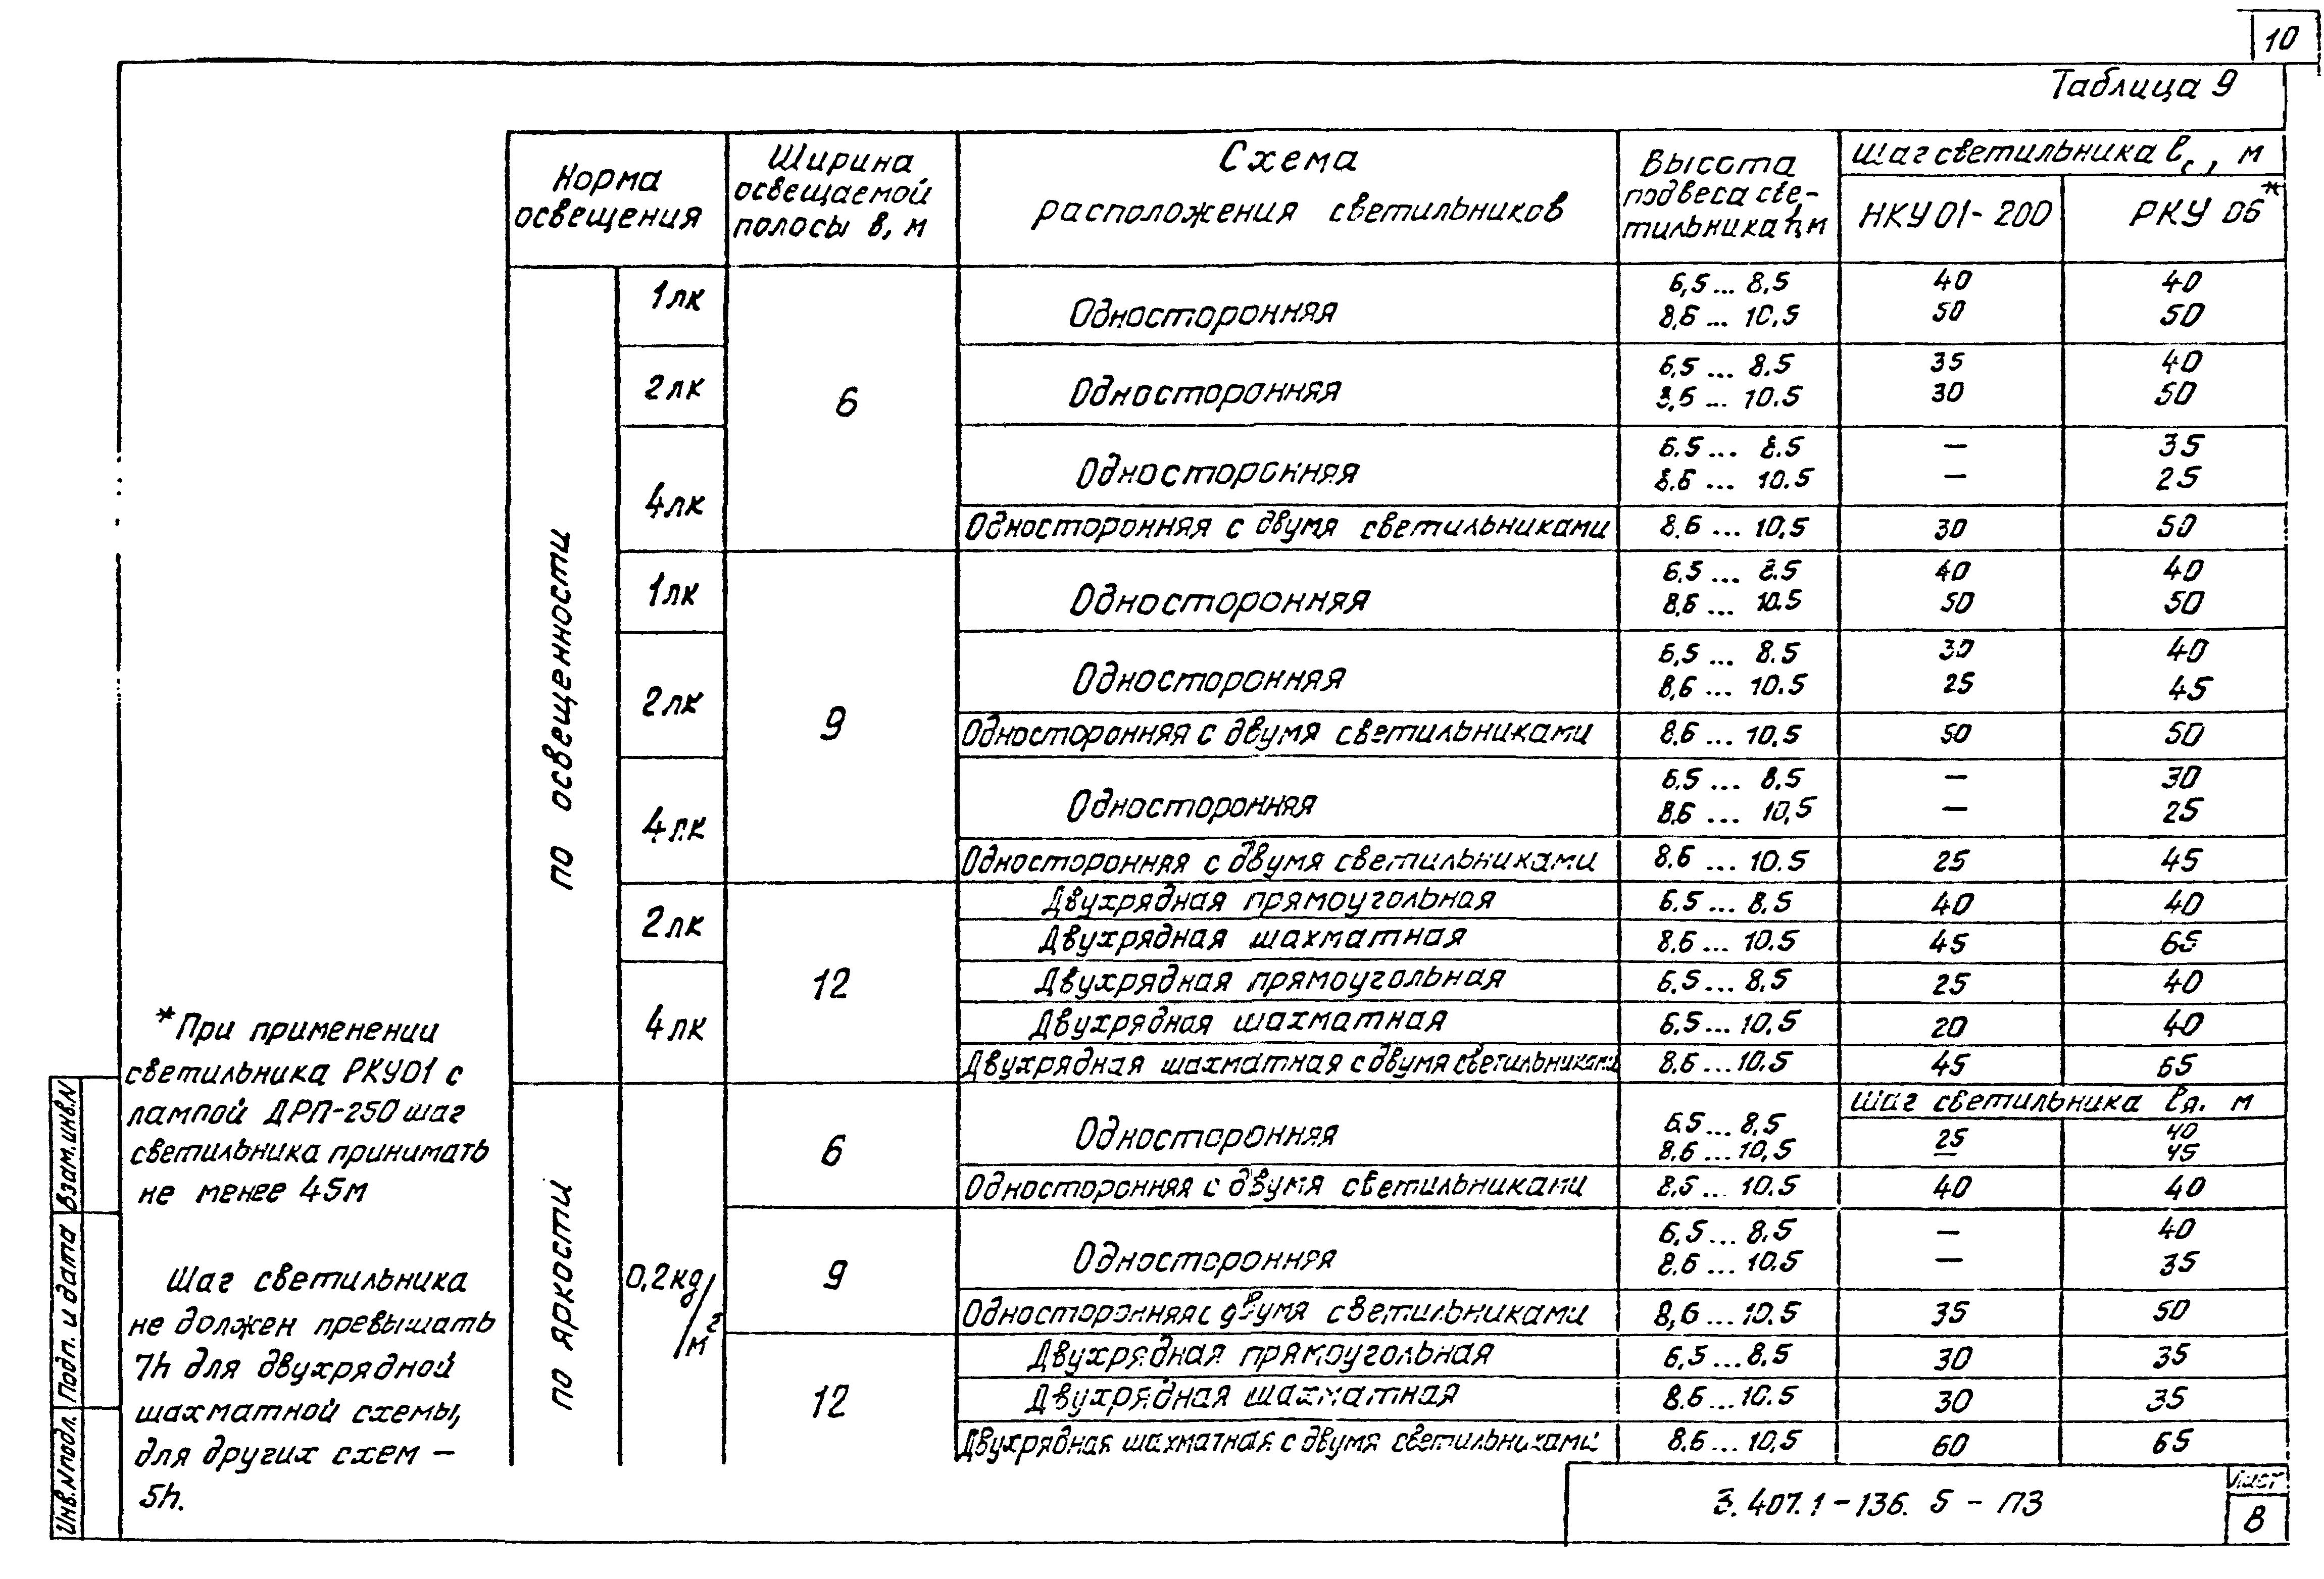 10
Таблица 9
Норма освещения
Ширина освещаемой полосы в, м
Схема расположения светильников
Высота подвеса све-тильника h, м
Шаг светильника ℓс, м
НКУ 01-200
РКУ 06*
по освещенности
1лк
6
Односторонняя
6,5... 8,5 40 40
8,6 ... 10,5 50 50
2лк
Односторонняя
6,5 ... 8.5 35 40
8,6 ... 10.5 30 50
4лк
Односторонняя
6.5 ... 8.5 — 35
8.6 ... 10.5 — 25
Односторонняя с двумя светильниками 8.6 ... 10,5 30 50
1лк
9
Односторонняя
6,5 ... 8.5 40 40
8,6 ... 10.5 50 50
2лк
Односторонняя
6,5 ... 8.5 30 40
8,6 ... 10.5 25 45
Односторонняя с двумя светильниками 8.6 ... 10,5 50 50
4лк
Односторонняя
6.5 ... 8,5 — 30
8.6 ... 10,5 — 25
Односторонняя с двумя светильниками 8.6 ... 10.5 25 45
2лк
12
Двухрядная прямоугольная 6.5 ... 8,5 40 40
Двухрядная шахматная 8.6 ... 10.5 45 65
4лк
Двухрядная прямоугольная 6,5 ... 8,5 25 40
Двухрядная шахматная 6.5 ... 10,5 20 40
Двухрядная шахматная с двумя светильниками 8.6 ... 10.5 45 65
по яркости
0,2кд/м²
Шаг светильника ℓя. м
6
Односторонняя
6.5 ... 8,5 25 40
8.6 ... 10,5 — 45
Односторонняя с двумя светильниками 8,5 ... 10.5 40 40
9
Односторонняя
6,5 ... 8.5 — 40
8.6 ... 10.5 — 35
Односторонняя с двумя светильниками 8,6 ... 10.5 35 50
12
Двухрядная прямоугольная 6,5 ... 8,5 30 35
Двухрядная шахматная 8.6 ... 10.5 30 35
Двухрядная шахматная с двумя светильниками 8.6 ... 10,5 60 65
*При применении
светильника РКУ01 с
лампой ДРЛ-250 шаг
светильника принимать
не менее 45м
Шаг светильника
не должен превышать
7h для двухрядной
шахматной схемы,
для других схем —
5h.
Взам.инв.N
Подп. и дата
Инв.N подл.
3.407.1-136. 5 - ПЗ
Лист
8